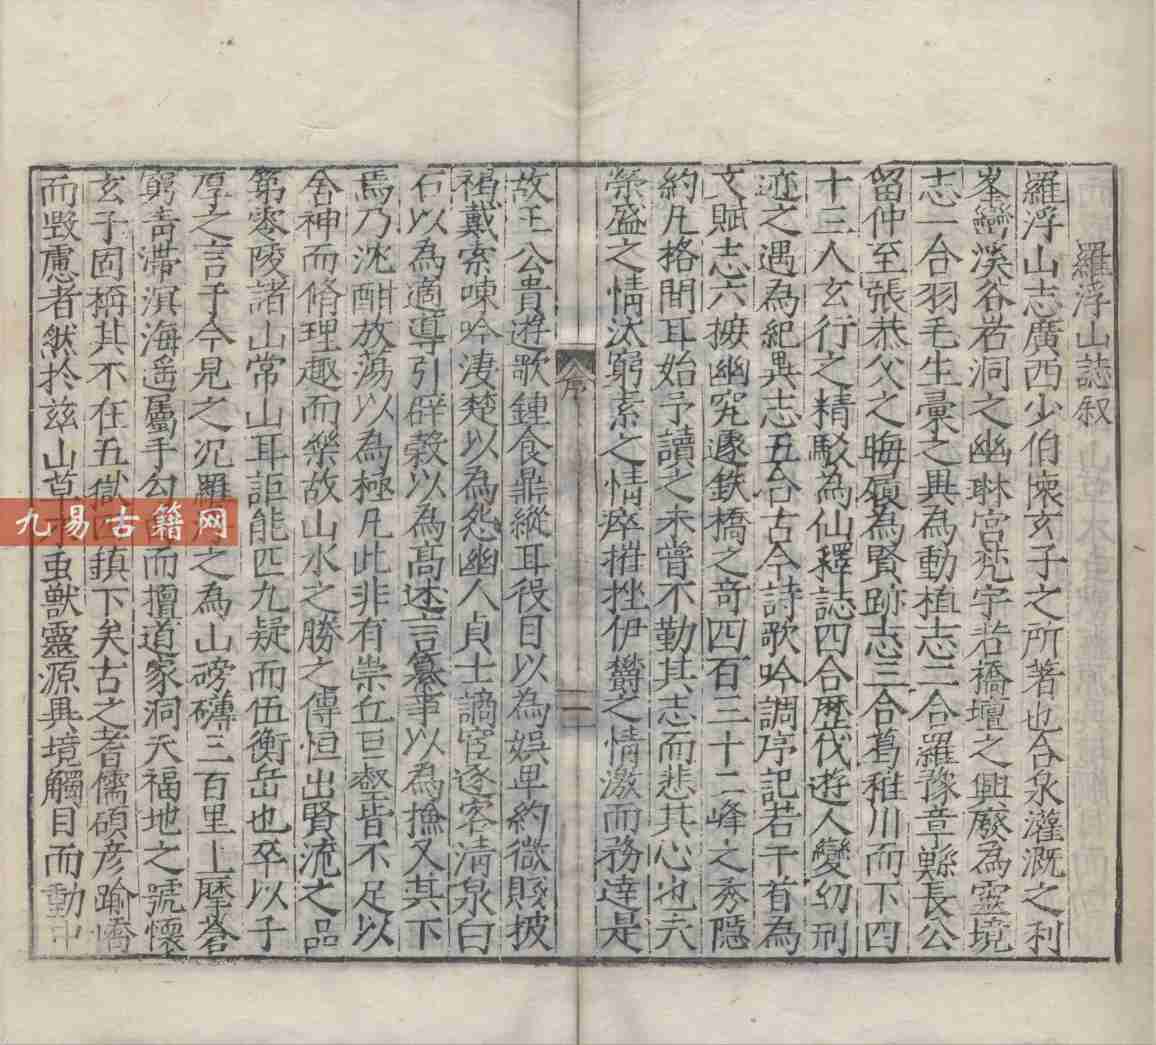 羅浮山誌叙
羅浮山志廣西少伯懷玄子之所著也合泉灌溉之利
峯巒溪谷岩洞之幽琳宮梵宇若橋壇之興廢為靈境
志一合羽毛生彚之異為動植志二合羅豫章縣長公
留仲至張恭父之晦屐為賢跡志三合葛稚川而下四
十三人玄行之精駁為仙釋誌四合歷伐遊人變幻刑
迹之遇為紀異志五合古今詩歌吟調序記若干首為
文賦志六按幽究邃鉄橋之竒四百三十二峰之秀隱
約凡格間耳始予讀之未嘗不勤其志而悲其心也夫
榮盛之情汰窮素之情瘁摧挫伊欝之情激而務達是
故王公貴遊歌鍾食鼎縱耳役目以為娯卑約微賤披
褐戴索喰吟淒楚以為怨幽人貞士謫宦逐客清泉白
石以為適導引辟穀以為高述言纂事以為撫又其下
焉乃沈酣放蕩以為極凡此非有崇丘巨壑皆不足以
舍神而脩理趣而樂故山水之勝之傳恒出賢流之品
第零陵諸山常山耳詎能匹九疑而伍衡岳也卒以子
厚之言于今見之况羅之為山磅礴三百里上摩蒼
窮青滯溟海遥屬手勾而擅道家洞天福地之號懷
玄子固搆其不在五獄鎮下矣古之耆儒碩彦踰嶠
而毁慮者然於兹山草虫獸靈源異境觸目而動中
序
二
九易古籍网